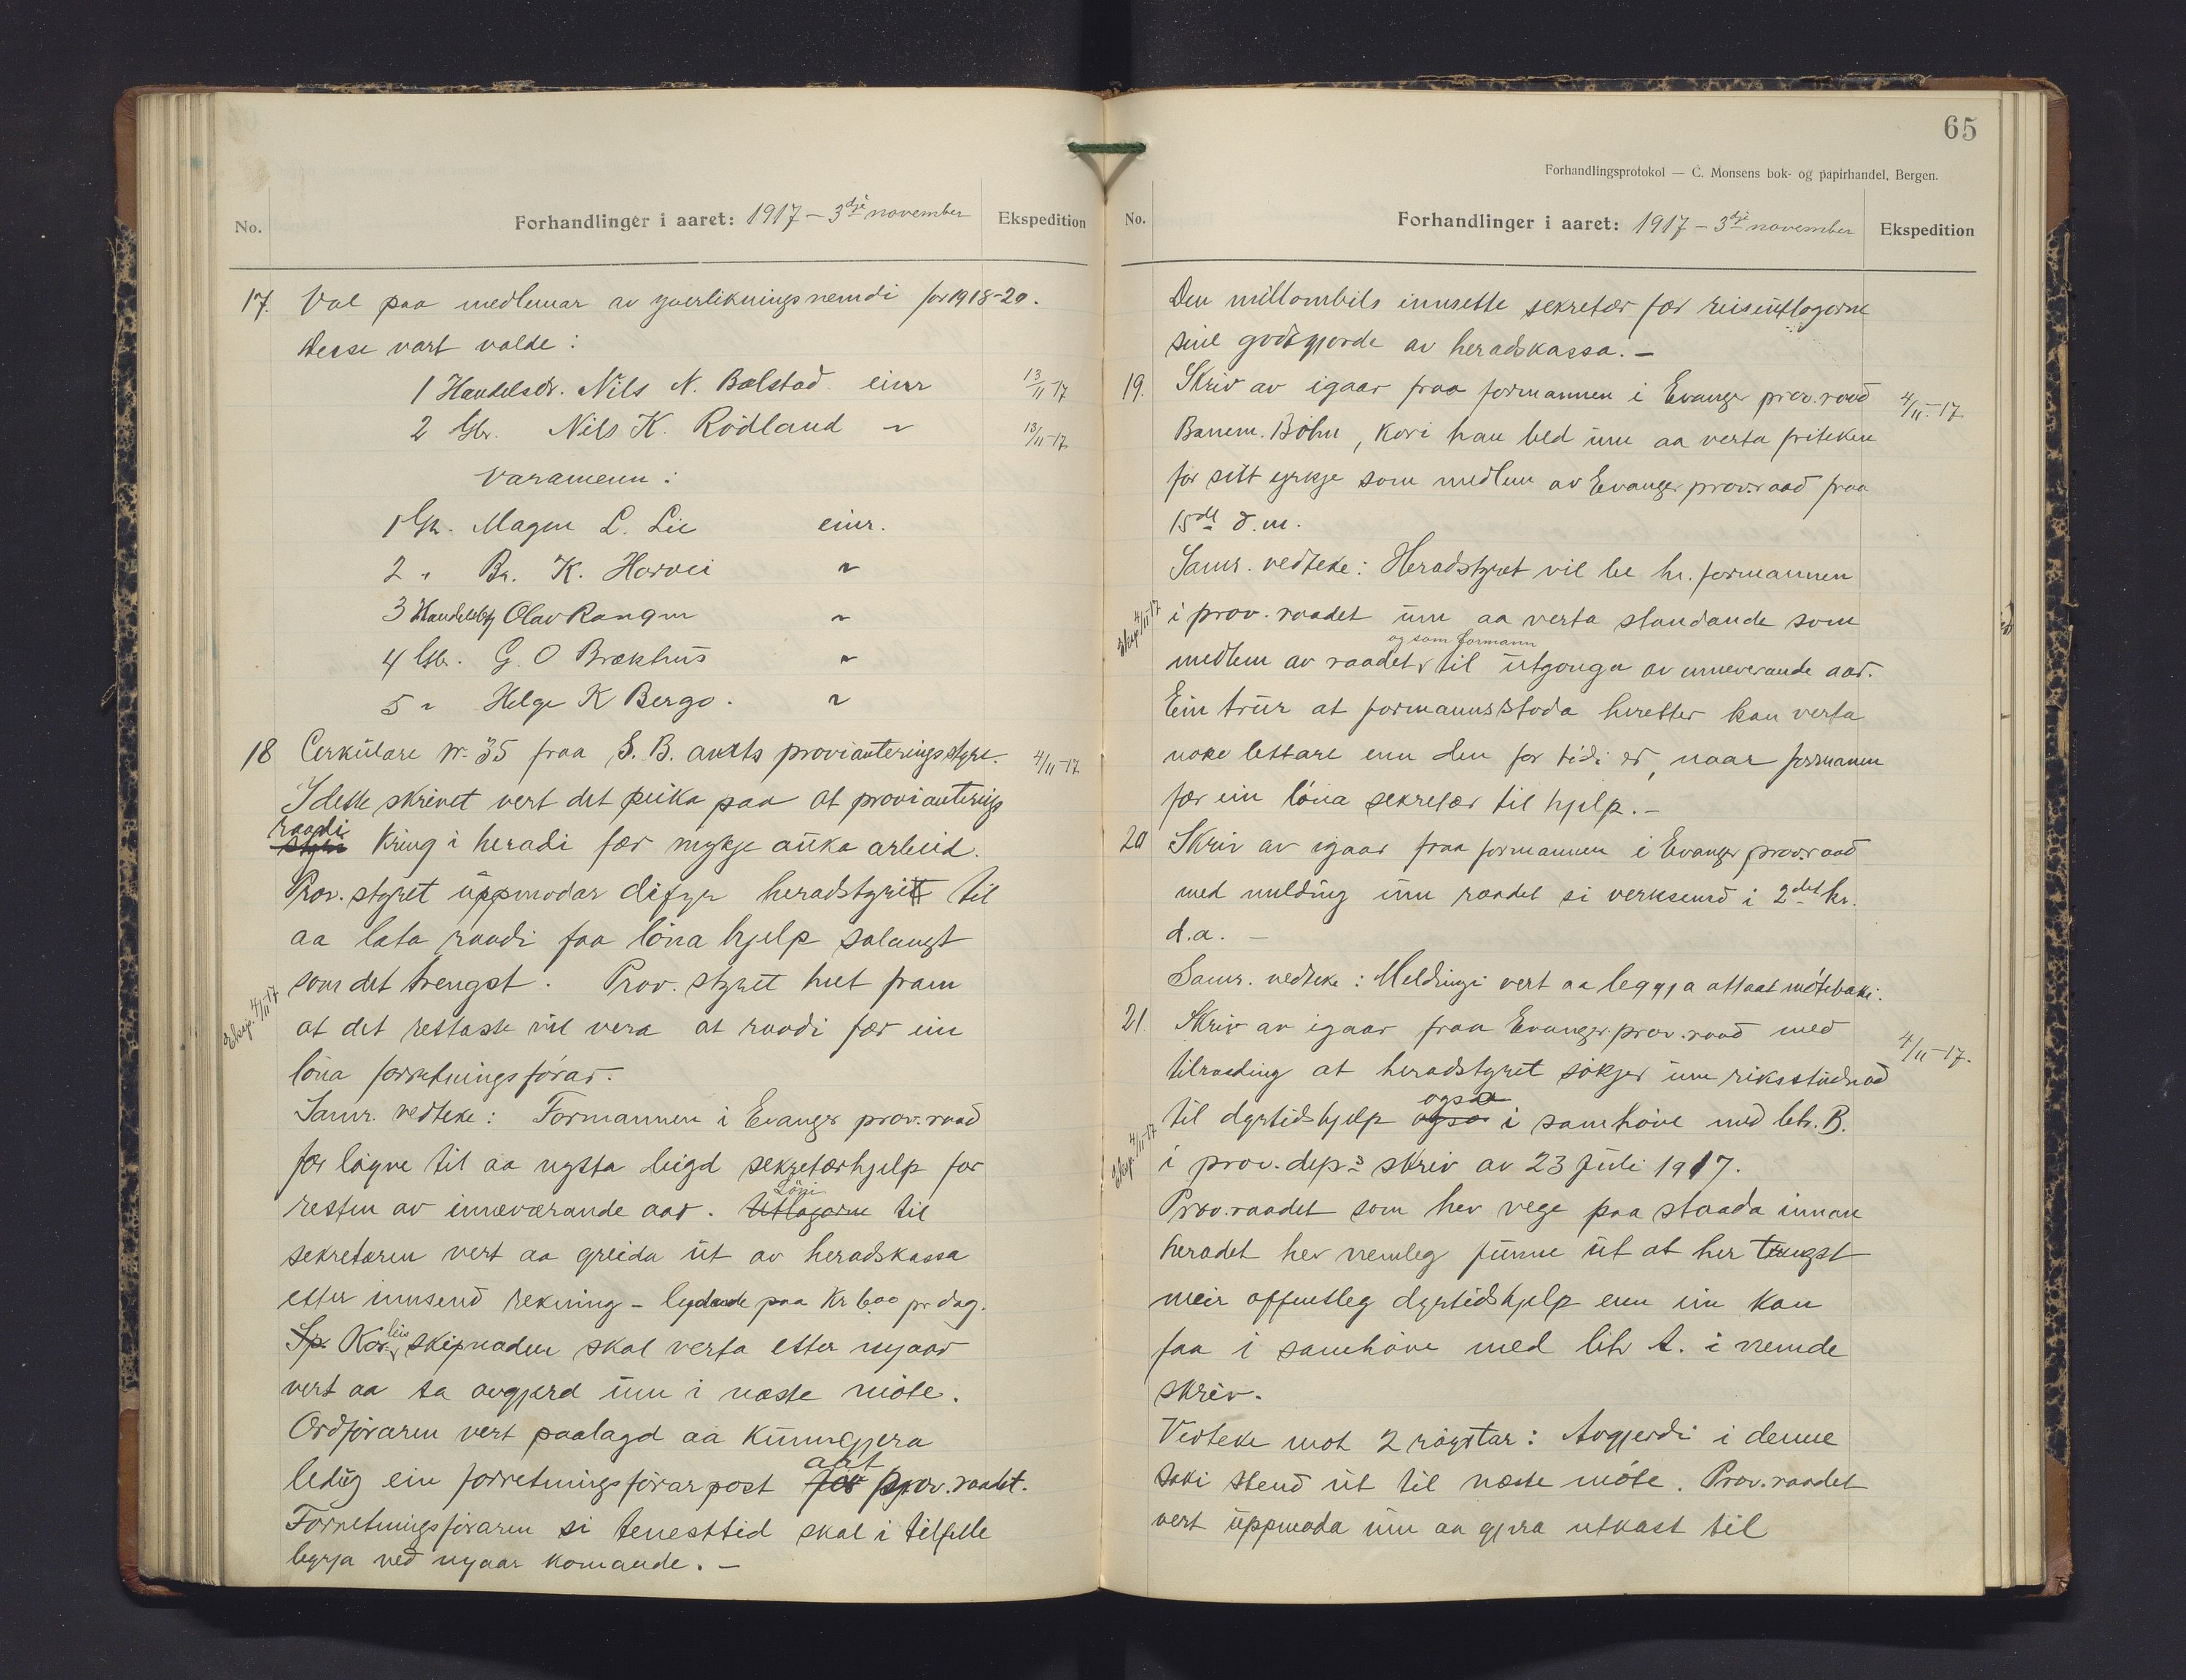 No. Forhandlinger i aaret: 1917 – 3dje november Ekspedition
17. Val paa medlemar av yverlikningsnemdi for 1918-20.
Desse vart valde:
1 Handelsdr. Nils N. Bolstad einr 13/11-17
2 Gbr. Nils K. Rödland " 13/11-17
Varamenn:
1 Gbr. Magne L. Lie einr.
2 " Br. K. Horvei "
3 Handelsbtj Olav Rongen "
4 Gbr. G. O Brækhus "
5 " Helge K Bergo. "
18 Cerkulare nr. 35 fraa S. B. amts provianteringsstyre. 4/11-17
I dette skrivet vert det peika paa at provianterings
raadi
styri kring i heradi fær mykje auka arbeid.
Prov. styret uppmodar difyr heradstyrit til
aa lata raadi faa löna hjelp solangt
som det trengst. Prov. styret het fram
Eksp. 4/11-17
at det rettaste vil vera at raadi fær ein
löna forretningsförar.
Samr. vedteke: Formannen i Evanger prov. raad
fær løyve til aa nytta leigd sekretærhjelp for
resten av inneværande aar. Utlogorne Löni til
sekretæren vert aa greida ut av heradskassa
etter innsend rekning – lydande paa Kr 6.00 pr dag.
Sp. Korleis skipnaden skal verta etter nyaar
vert aa ta avgjerd um i næste möte.
Ordföraren vert paalagd aa kunngjera
ledig ein forretningsförarpost for aat prov. raadet.
Forretningsföraren si tenesttid skal i tilfelle
byrja ved nyaar komande. –
65
Forhandlingsprotokol — C. Monsens bok- og papirhandel, Bergen.
No. Forhandlinger i aaret: 1917 – 3dje november Ekspedition
Den millombils innsette sekretær fær reiseutlogorne
sine godtgjorde av heradskassa. –
19. Skriv av igaar fraa formannen i Evanger prov. raad 4/11-17
Banem. Böhn, kori han bed um aa verta friteken
for sitt yrkje som medlem av Evanger prov.raad fraa
15de d.m.
Samr. vedteke: Heradstyret vil be hr. formannen
Eksp. 4/11-17
i prov. raadet um aa verta standande som
og som formann
medlem av raadet til utgonga av inneverande aar.
Ein trur at formannsstoda heretter kan verta
noko lettare enn den for tidi er, naar formannen
fær ein löna sekretær til hjelp. –
20 Skriv av igaar fraa formannen i Evanger prov.raad
med melding um raadet si verksemd i 2det kv.
d.a. –
Samr. vedteke: Meldingi vert aa leggja attaat mötebøki.
21 Skriv av igaar fraa Evanger prov. raad med 4/11-17.
tilraading at heradstyret sökjer um riksstudnad
til dyrtidshjelp ogso ogsaa i samhöve med litr. B.
Eksp. 4/11-17
i prov. deps skriv av 23 juli 1917.
Prov.raadet som hev vege paa staada innan
heradet hev nemleg funne ut at her tengst
meir offentleg dyrtidshjelp enn ein kan
faa i samhöve med litr A. i nemde
skriv.
Vedteke mot 2 röystar: Avgjerdi i denne
saki stend ut til næste möte. Prov. raadet
vert uppmoda um aa gjera utkast til